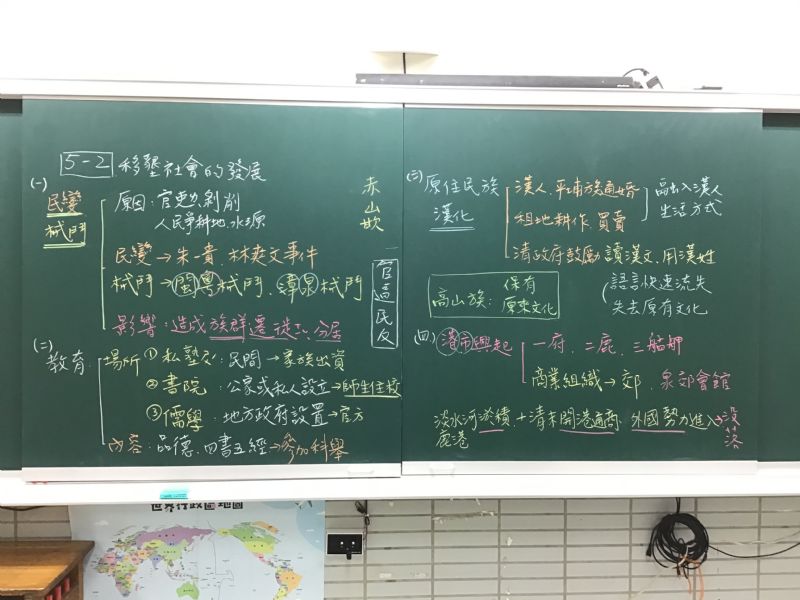 5-2 移墾社會的發展
(一)
民變
械鬥
原因:官吏剝削
人民爭耕地、水源
民變→朱一貴、林爽文事件
械鬥→閩粵械鬥、漳泉械鬥
影響:造成族群遷徙、分居
赤山
官逼民反
(二)
教育
場所 ① 私塾:民間→家族出資
② 書院:公家或私人設立→師生住校
③ 儒學:地方政府設置→官方
內容:品德、四書五經→參加科舉
(三) 原住民族
漢化
漢人、平埔族通婚
租地耕作、買賣
清政府鼓勵 讀漢文、用漢姓
融入漢人
生活方式
高山族:保有
原來文化
語言快速流失
失去原有文化
(四) 港市興起
一府、二鹿、三艋舺
商業組織→郊、泉郊會館
淡水河淤積+清末開港通商、外國勢力進入→沒落
鹿港
世界行政區地圖